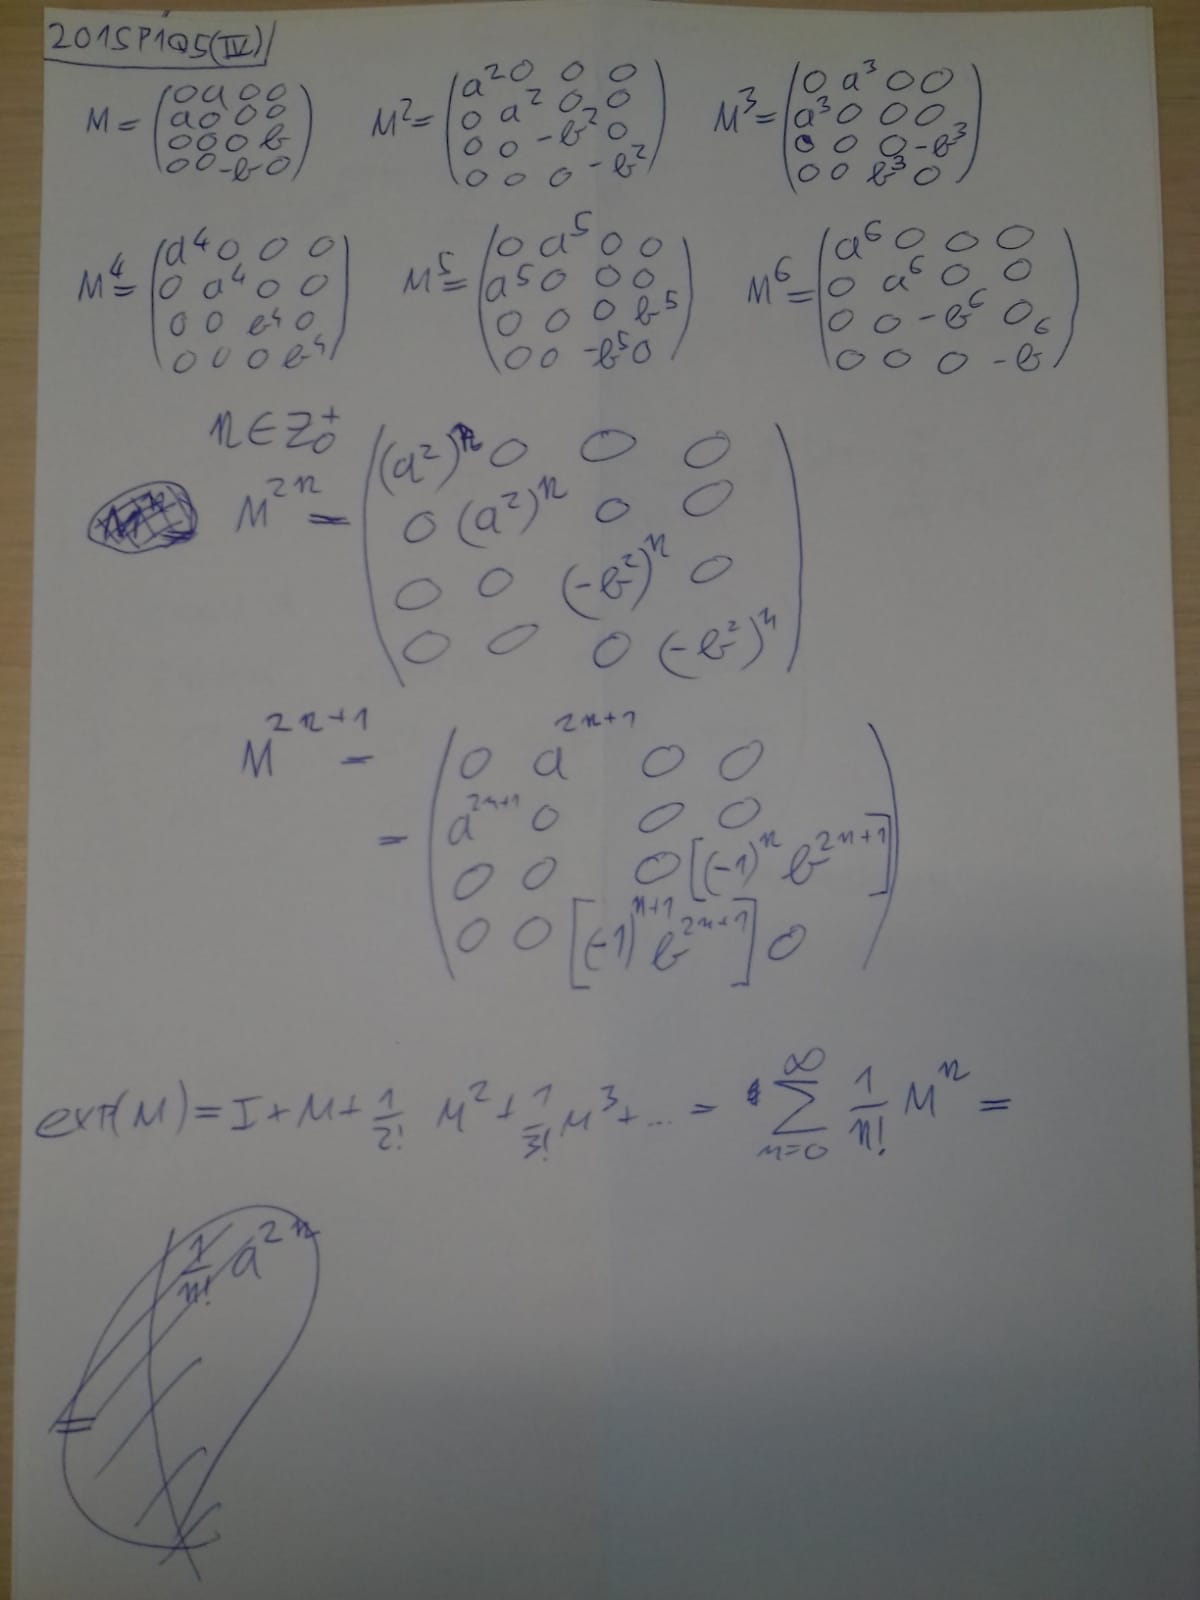 2015P1Q5(IV)
M = (0 a 0 0 / a 0 0 0 / 0 0 0 b / 0 0 -b 0) M² = (a² 0 0 0 / 0 a² 0 0 / 0 0 -b² 0 / 0 0 0 -b²) M³ = (0 a³ 0 0 / a³ 0 0 0 / 0 0 0 -b³ / 0 0 b³ 0)
M⁴ = (a⁴ 0 0 0 / 0 a⁴ 0 0 / 0 0 b⁴ 0 / 0 0 0 b⁴) M⁵ = (0 a⁵ 0 0 / a⁵ 0 0 0 / 0 0 0 b⁵ / 0 0 -b⁵ 0) M⁶ = (a⁶ 0 0 0 / 0 a⁶ 0 0 / 0 0 -b⁶ 0 / 0 0 0 -b⁶)
n ∈ Z₀⁺
M²ⁿ = ((a²)ⁿ 0 0 0 / 0 (a²)ⁿ 0 0 / 0 0 (-b²)ⁿ 0 / 0 0 0 (-b²)ⁿ)
M²ⁿ⁺¹ =
= (0 a²ⁿ⁺¹ 0 0 / a²ⁿ⁺¹ 0 0 0 / 0 0 0 [(-1)ⁿ b²ⁿ⁺¹] / 0 0 [(-1)ⁿ⁺¹ b²ⁿ⁺¹] 0)
exp(M) = I + M + 1/2! M² + 1/3! M³ + ... = ∑_{n=0}^{∞} 1/n! Mⁿ =
1/n! a²ⁿ
=